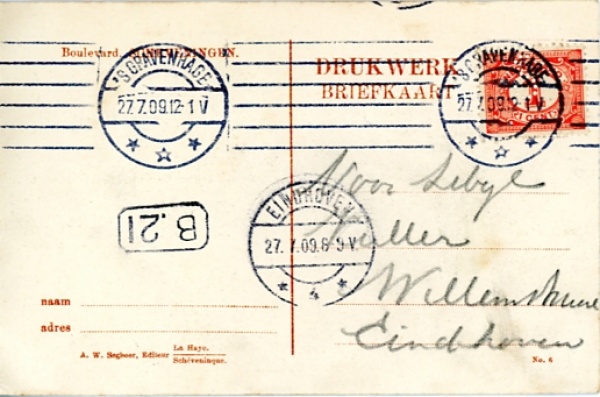 Boulevard. SCHEVENINGEN.
'S GRAVENHAGE
27.7.09.12-1 V
DRUKWERK
BRIEFKAART
'S GRAVENHAGE
27.7.09.12-1 V
1 CENT
Voor Sebyl
Muller
Willemstraat
Eindhoven
B.21
EINDHOVEN
27.7.09.8-9 V.
4
naam
adres
A. W. Segboer, Editeur La Haye.
Schéveningue.
No. 6